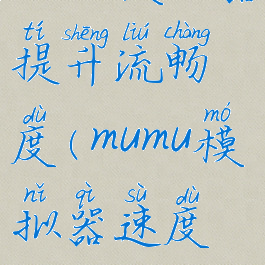 tí shēng liú chàng
提升流畅
dù mó
度(mumu模
nǐ qì sù dù
拟器速度